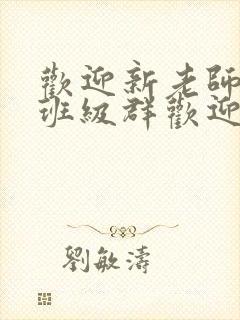 歡迎新老師
班級群歡迎
劉敏濤